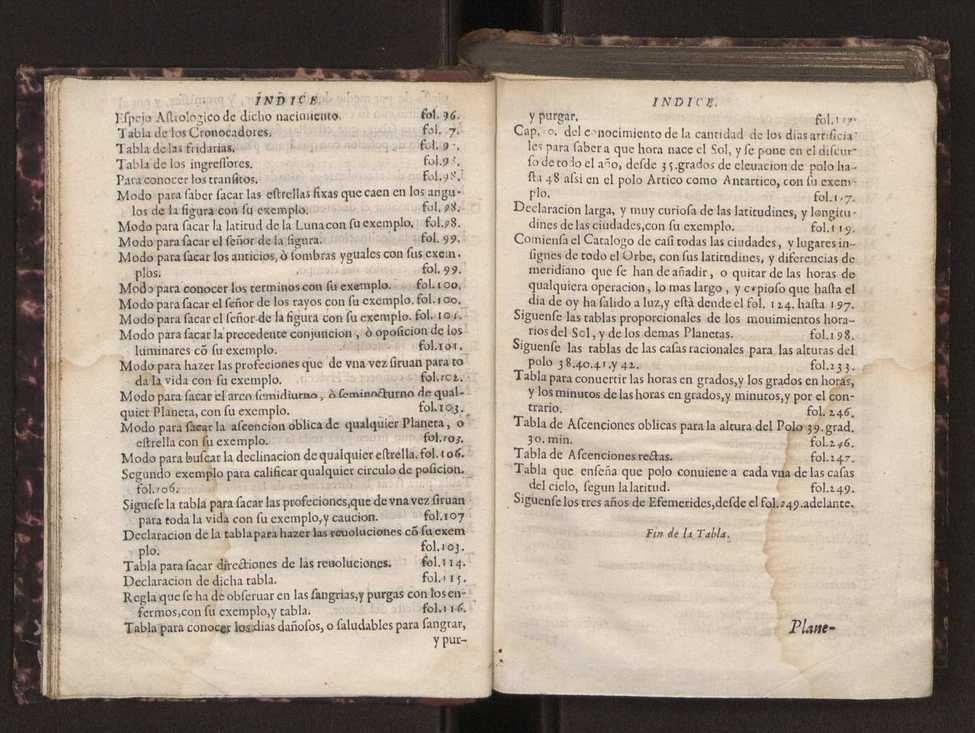 INDICE.
Espejo Astrologico de dicho nacimiento. fol. 96.
Tabla de los Cronocadores. fol. 7.
Tabla de las fridarias. fol. 9
Tabla de los ingressores. fol. 9
Para conocer los transitos. fol. 98.
Modo para saber sacar las estrellas fixas que caen en los angu-
los de la figura con su exemplo. fol. 98.
Modo para sacar la latitud de la Luna con su exemplo. fol. 98.
Modo para sacar el señor de la figura. fol. 99.
Modo para sacar los anticios, ò sombras yguales con sus exem-
plos. fol. 99.
Modo para conocer los terminos con su exemplo. fol. 100.
Modo para sacar el señor de los rayos con su exemplo. fol. 100.
Modo para sacar el señor de la figura con su exemplo. fol. 101.
Modo para sacar la precedente conjuncion, ò oposicion de los
luminares cõ su exemplo. fol. 101.
Modo para hazer las profeciones que de vna vez siruan para to
da la vida con su exemplo. fol. 102.
Modo para sacar el arco semidiurno, ò seminocturno de qual-
quier Planeta, con su exemplo. fol. 103.
Modo para sacar la ascencion oblica de qualquier Planeta, o
estrella con su exemplo. fol. 103.
Modo para buscar la declinacion de qualquier estrella. fol. 106.
Segundo exemplo para calificar qualquier circulo de posicion.
fol. 106.
Siguese la tabla para sacar las profeciones, que de vna vez siruan
para toda la vida con su exemplo, y caucion. fol. 107
Declaracion de la tabla para hazer las reuoluciones cõ su exem
plo. fol. 103.
Tabla para sacar directiones de las reuoluciones. fol. 114.
Declaracion de dicha tabla. fol. 115.
Regla que se ha de obseruar en las sangrias, y purgas con los en-
fermos, con su exemplo, y tabla. fol. 116.
Tabla para conocer los dias dañosos, o saludables para sangrar,
y pur-
INDICE.
y purgar. fol. 117.
Cap. del conocimiento de la cantidad de los dias artificia
les para saber a que hora nace el Sol, y se pone en el discur-
so de todo el año, desde 35. grados de eleuacion de polo ha-
sta 48 assi en el polo Artico como Antartico, con su exem
plo. fol. 117.
Declaracion larga, y muy curiosa de las latitudines, y longitu-
dines de las ciudades, con su exemplo. fol. 119.
Comiensa el Catalogo de casi todas las ciudades, y lugares in-
signes de todo el Orbe, con sus latitudines, y diferencias de
meridiano que se han de añadir, o quitar de las horas de
qualquiera operacion, lo mas largo, y copioso que hasta el
dia de oy ha salido a luz, y està dende el fol. 124. hasta 197.
Siguense las tablas proporcionales de los mouimientos hora-
rios del Sol, y de los demas Planetas. fol. 198.
Siguense las tablas de las casas racionales para las alturas del
polo 38. 40. 41. y 42. fol. 233.
Tabla para conuertir las horas en grados, y los grados en horas,
y los minutos de las horas en grados, y minutos, y por el con-
trario. fol. 246.
Tabla de Ascenciones oblicas para la altura del Polo 39. grad.
30. min. fol. 246.
Tabla de Ascenciones rectas. fol. 247.
Tabla que enseña que polo conuiene a cada vna de las casas
del cielo, segun la latitud. fol. 249.
Siguense los tres años de Efemerides, desde el fol. 249. adelante.
Fin de la Tabla.
Plane-